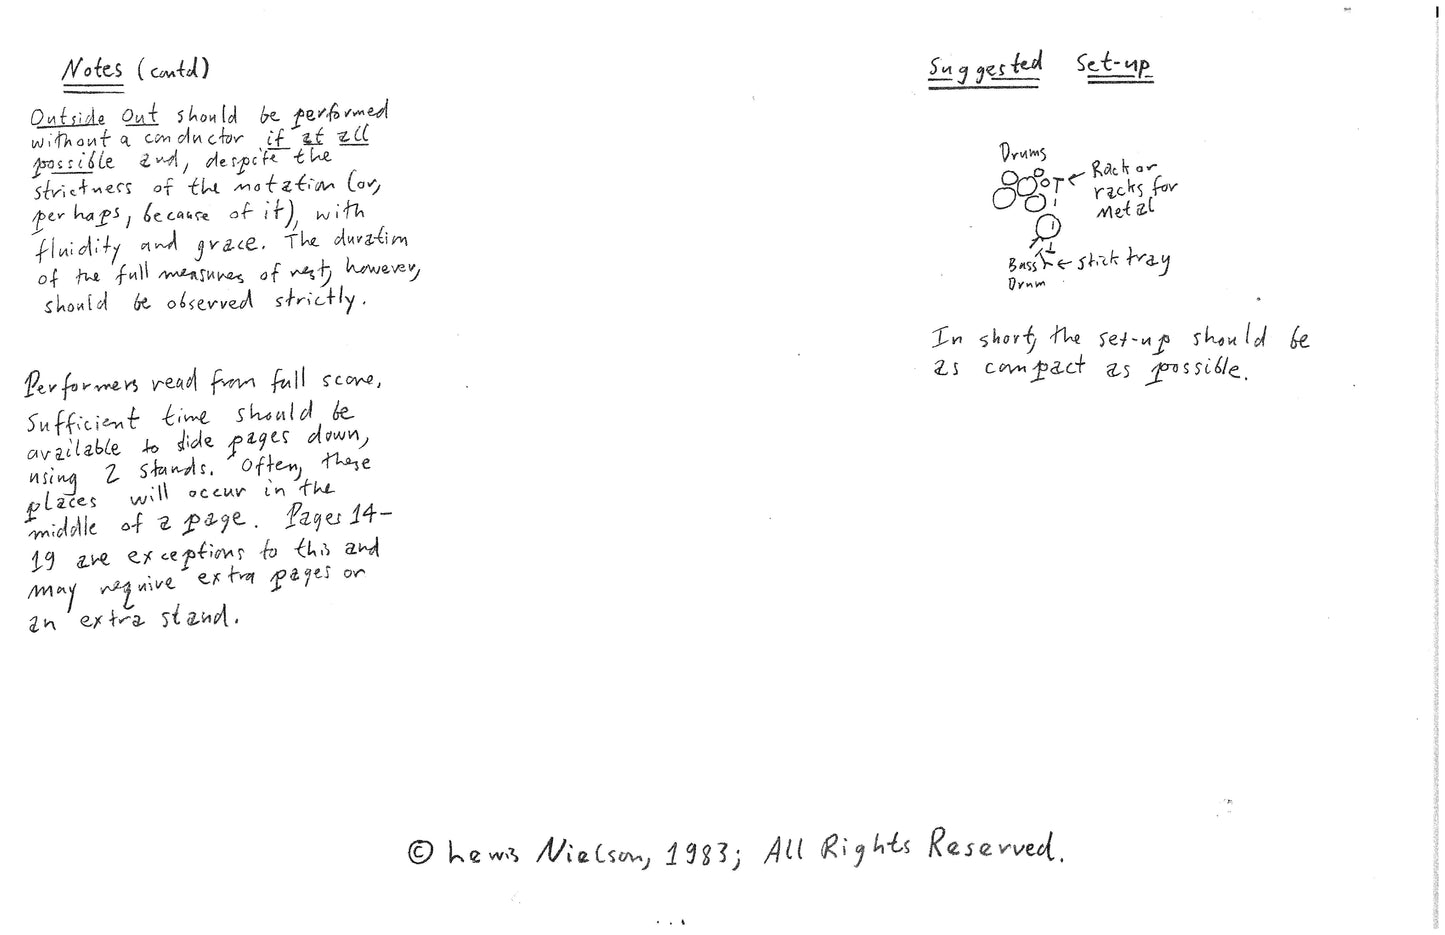 Notes (contd)
Outside Out should be performed
without a conductor if at all
possible and, despite the
strictness of the notation (or,
perhaps, because of it), with
fluidity and grace. The duration
of the full measures of rest, however,
should be observed strictly.
Performers read from full score.
Sufficient time should be
available to slide pages down,
using 2 stands. Often, these
places will occur in the
middle of a page. Pages 14-
19 are exceptions to this and
may require extra pages or
an extra stand.
Suggested Set-up
Drums
Rack or
racks for
Metal
Bass
Drum
stick tray
In short, the set-up should be
as compact as possible.
© Lewis Nielson, 1983; All Rights Reserved.